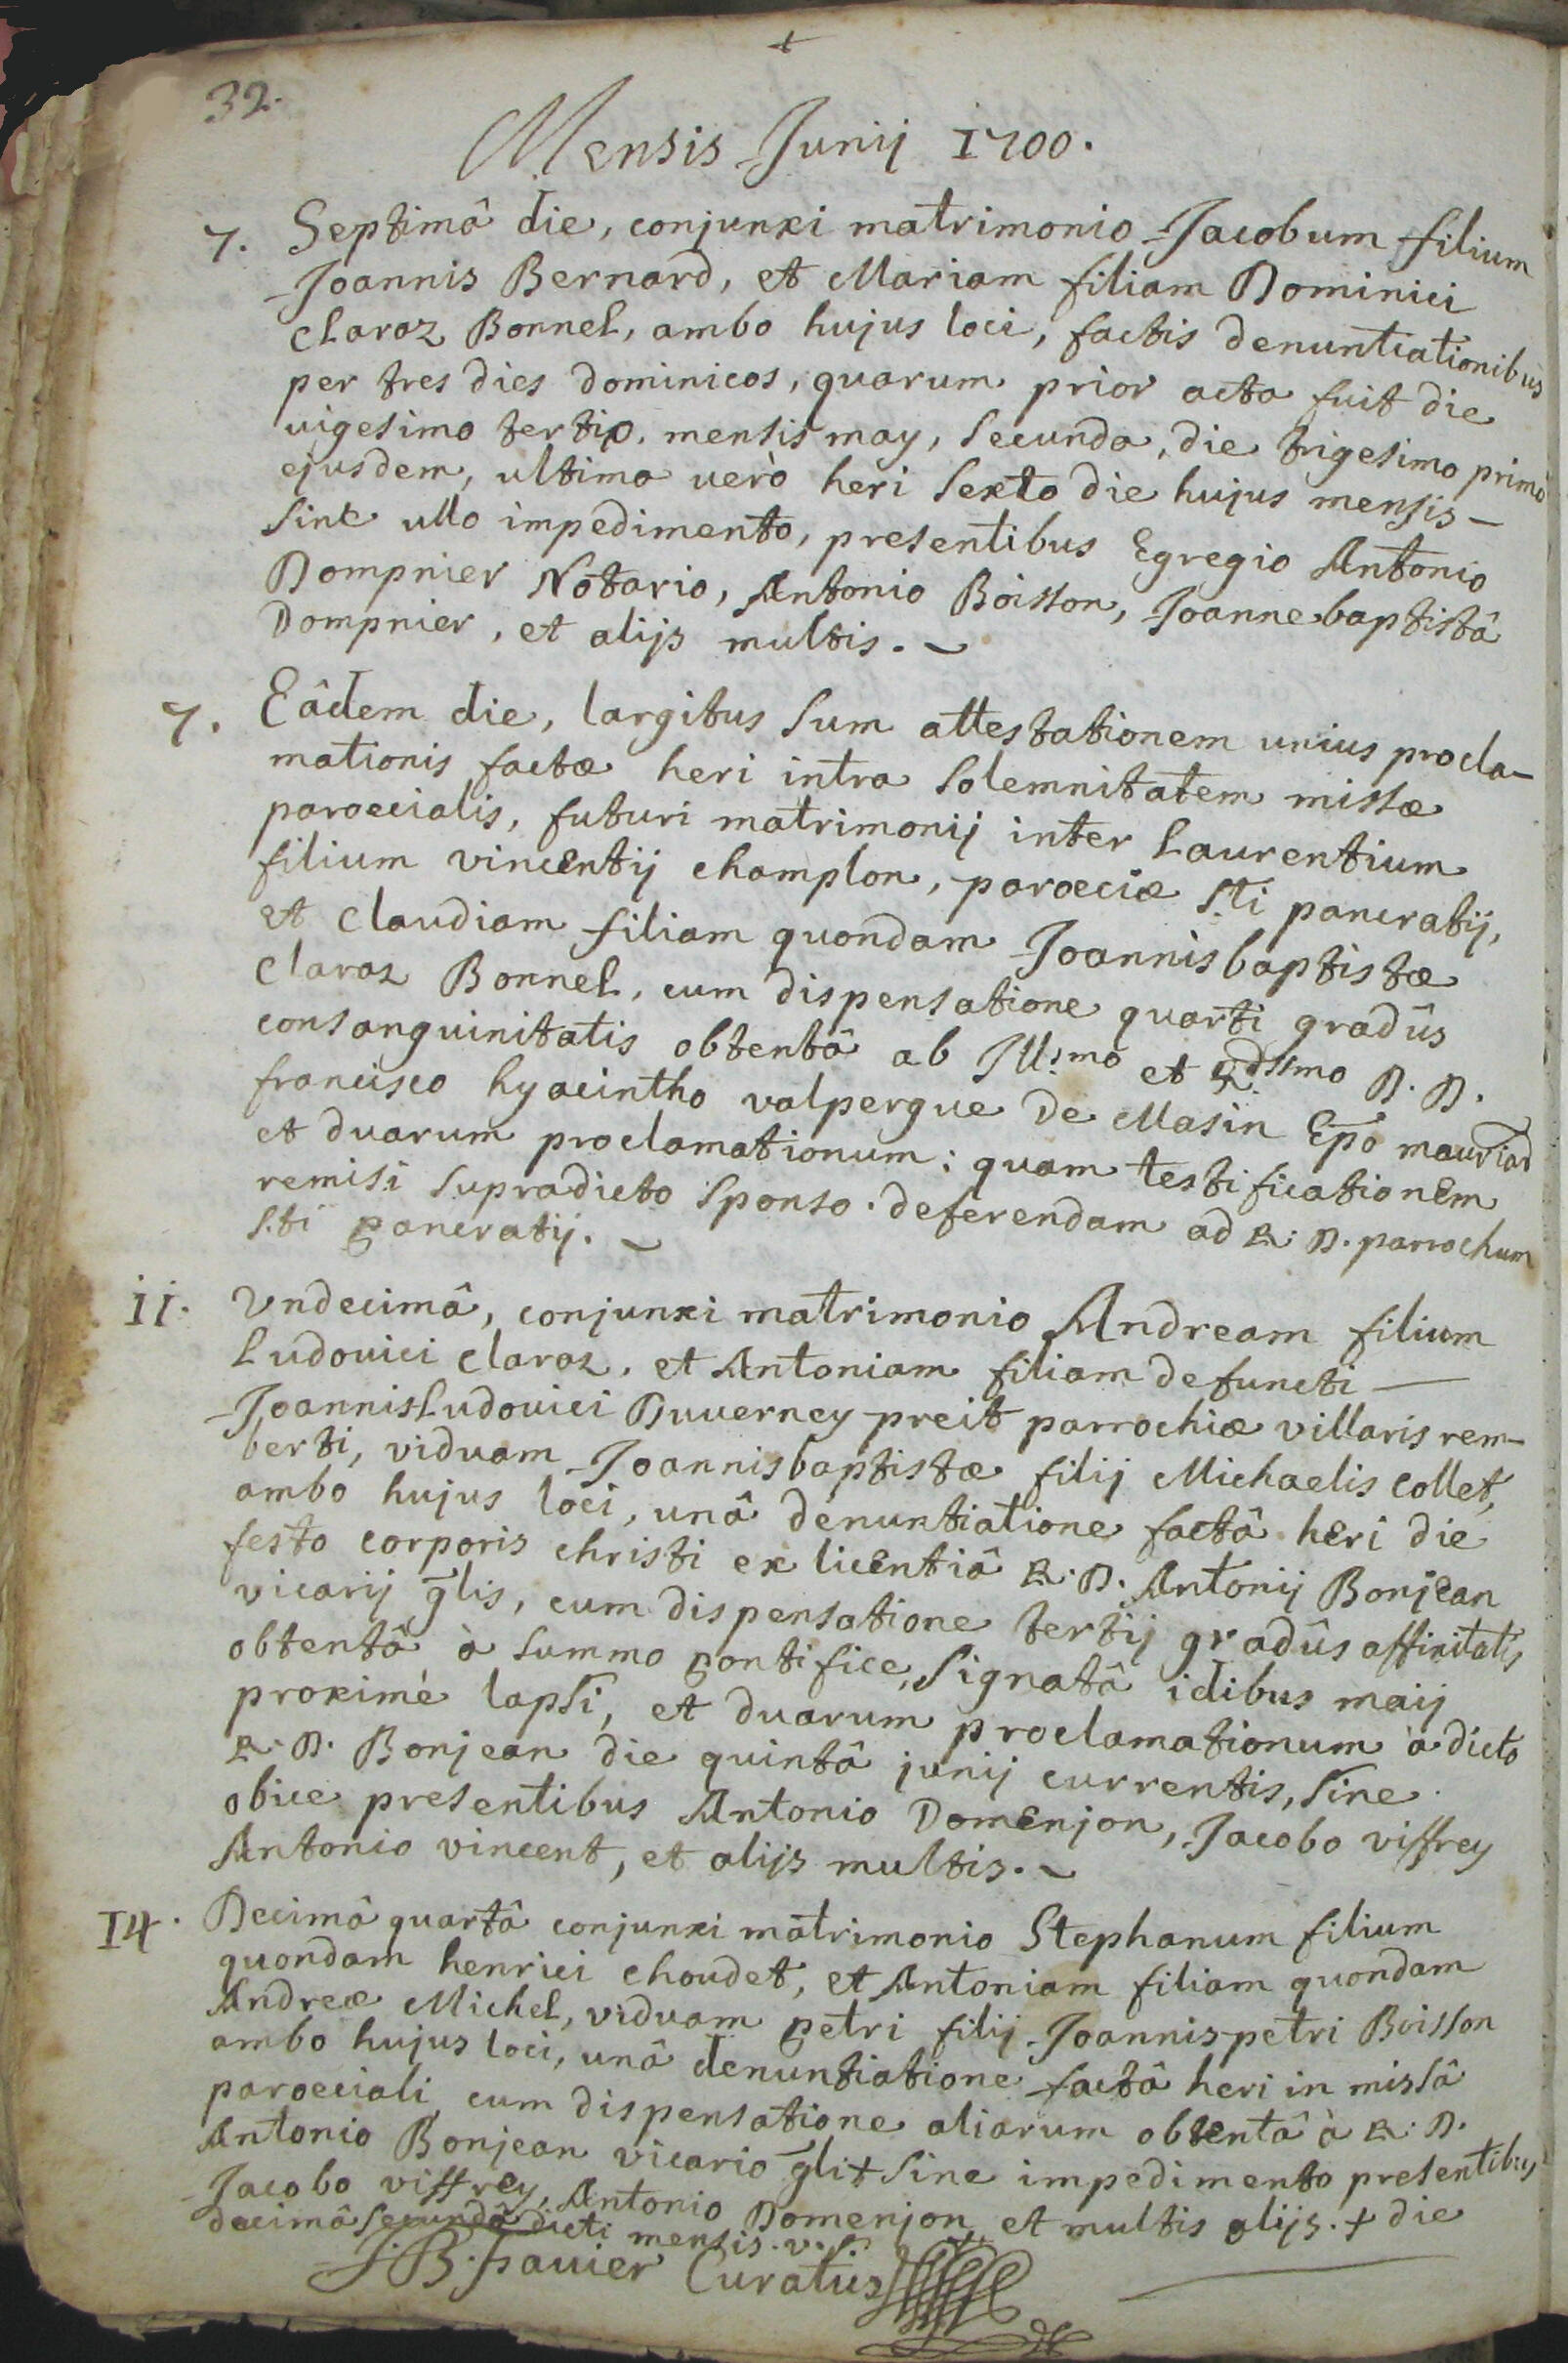 +
32.
Mensis Junij 1700.
7. Septimâ die, conjunxi matrimonio Jacobum filium
Joannis Bernard, et Mariam filiam Dominici
claraz Bonnel, ambo hujus loci, factis denuntiationibus
per tres dies dominicos, quarum prior acta fuit die
uigesimo tertio, mensis may, secunda, die trigesimo primo
ejusdem, ultima uerò heri sexto die hujus mensis -
sine ullo impedimento, presentibus Egregio Antonio
Dompnier Notario, Antonio Boisson, Joannebaptistâ
Dompnier, et alijs multis. ~
7. Eâdem die, largitus sum attestationem unius procla-
mationis factæ heri intra solemnitatem missæ
paroecialis, futuri matrimonij inter Laurentium
filium vincentij champlon, paroeciæ Sti pancratij,
et claudiam filiam quondam Joannisbaptistæ
claraz Bonnel, cum dispensatione quarti gradûs
consanguinitatis obtentâ ab Ill.mo et R.dssmo D. D.
francisco hyacintho valpergue De Masin Epo mauriad
et duarum proclamationum; quam testificationem
remisi supradicto sponso deferendam ad R. D. parrochum
S.ti pancratij. ~
ii. Vndecimâ, conjunxi matrimonio Andream filium
Ludouici claraz, et Antoniam filiam defuncti -
JoannisLudouici Duuerney preit parrochiæ villaris rem-
berti, viduam Joannisbaptistæ filij Michaelis collet,
ambo hujus loci, unâ denuntiatione factâ heri die
festo corporis christi ex licentiâ R. D. Antonij Bonjean
vicarij glis, cum dispensatione tertij gradûs affinitatis
obtentâ à summo pontifice, signatâ idibus maij
proximè lapsi, et duarum proclamationum à dicto
R. D. Bonjean die quintâ junij currentis, sine
obice presentibus Antonio Domenjon, Jacobo viffrey
Antonio vincent, et alijs multis. ~
14. Decimâ quartâ conjunxi matrimonio Stephanum filium
quondam henrici choudet, et Antoniam filiam quondam
Andreæ Michel, viduam petri filij Joannispetri Boisson
ambo hujus loci, unâ denuntiatione factâ heri in missâ
paroeciali cum dispensatione aliarum obtentâ à R. D.
Antonio Bonjean vicario gli + sine impedimento presentibus
Jacobo viffrey, Antonio Domenjon et multis alijs. + die
decimâ secundâ dicti mensis.
J. B. fauier Curatus